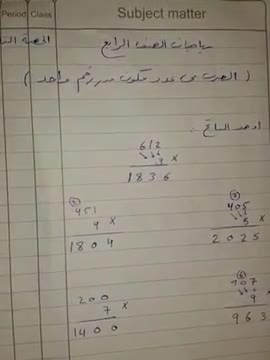 Period Class Subject matter
رياضيات الصف الرابع
الحصة
( الضرب في عدد مكون من رقم واحد )
أوجد الناتج :
612
3 ×
1836
② ②
451 405
4 × 5 ×
1804 2025
⑥
200 107
7 × 9 ×
1400 963